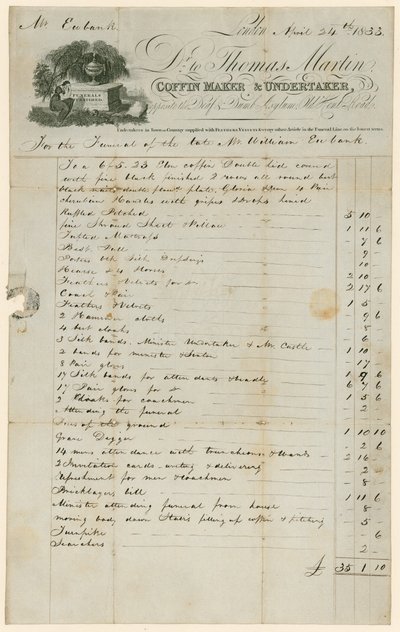 Mr Eubank. London April 24th 1833.
Dr to Thomas Martin
FUNERALS FURNISHED.
COFFIN MAKER & UNDERTAKER,
opposite the Deaf & Dumb Asylum, Old Kent Road.
Undertakers in Town or Country supplied with FEATHERS VELVETS & every other Article in the Funeral Line on the lowest terms.
For the Funeral of the late Mr William Eubank
To a 6.5.23 Elm coffin Double lid covd
with fine black finished 2 rows all round best
black nails plate, Gloria & Urn 4 Pair
cherubim Handles with gripes & drops lined
Ruffled Pitched 5 10
fine Shroud Sheet Pillow 1 11 6
Tufted Mattress 7 6
Best Pall 9
Porters with Silk 10
Hearse & 4 Horses 2 10
Feathers Velvets for do 2 17 6
Coach & Pair 1 5
Feathers & Velvets 9
2 Hammer cloths 6
4 best cloaks 8
3 Silk bands. Minister Undertaker & Mr Castle 1 10
2 bands for minister &
8 Pair gloves 17
17 Silk bands for attendants & beadle 6 7 6
17 Pair gloves for do 1 5 6
2 Cloaks for coachmen 2
Attending the funeral
Dues of the ground 1 10 10
Grave Digger 2 6
14 mens attendance with truncheons & wands 2 16
2 Invitation cards writing & delivering 2
Refreshment for men & coachmen 8
Bricklayers bill 1 11 6
Minister attending funeral from house 8
moving body down Stairs filling up coffin & pitching 5
Turnpike 6
Searchers 2
£ 35 1 10